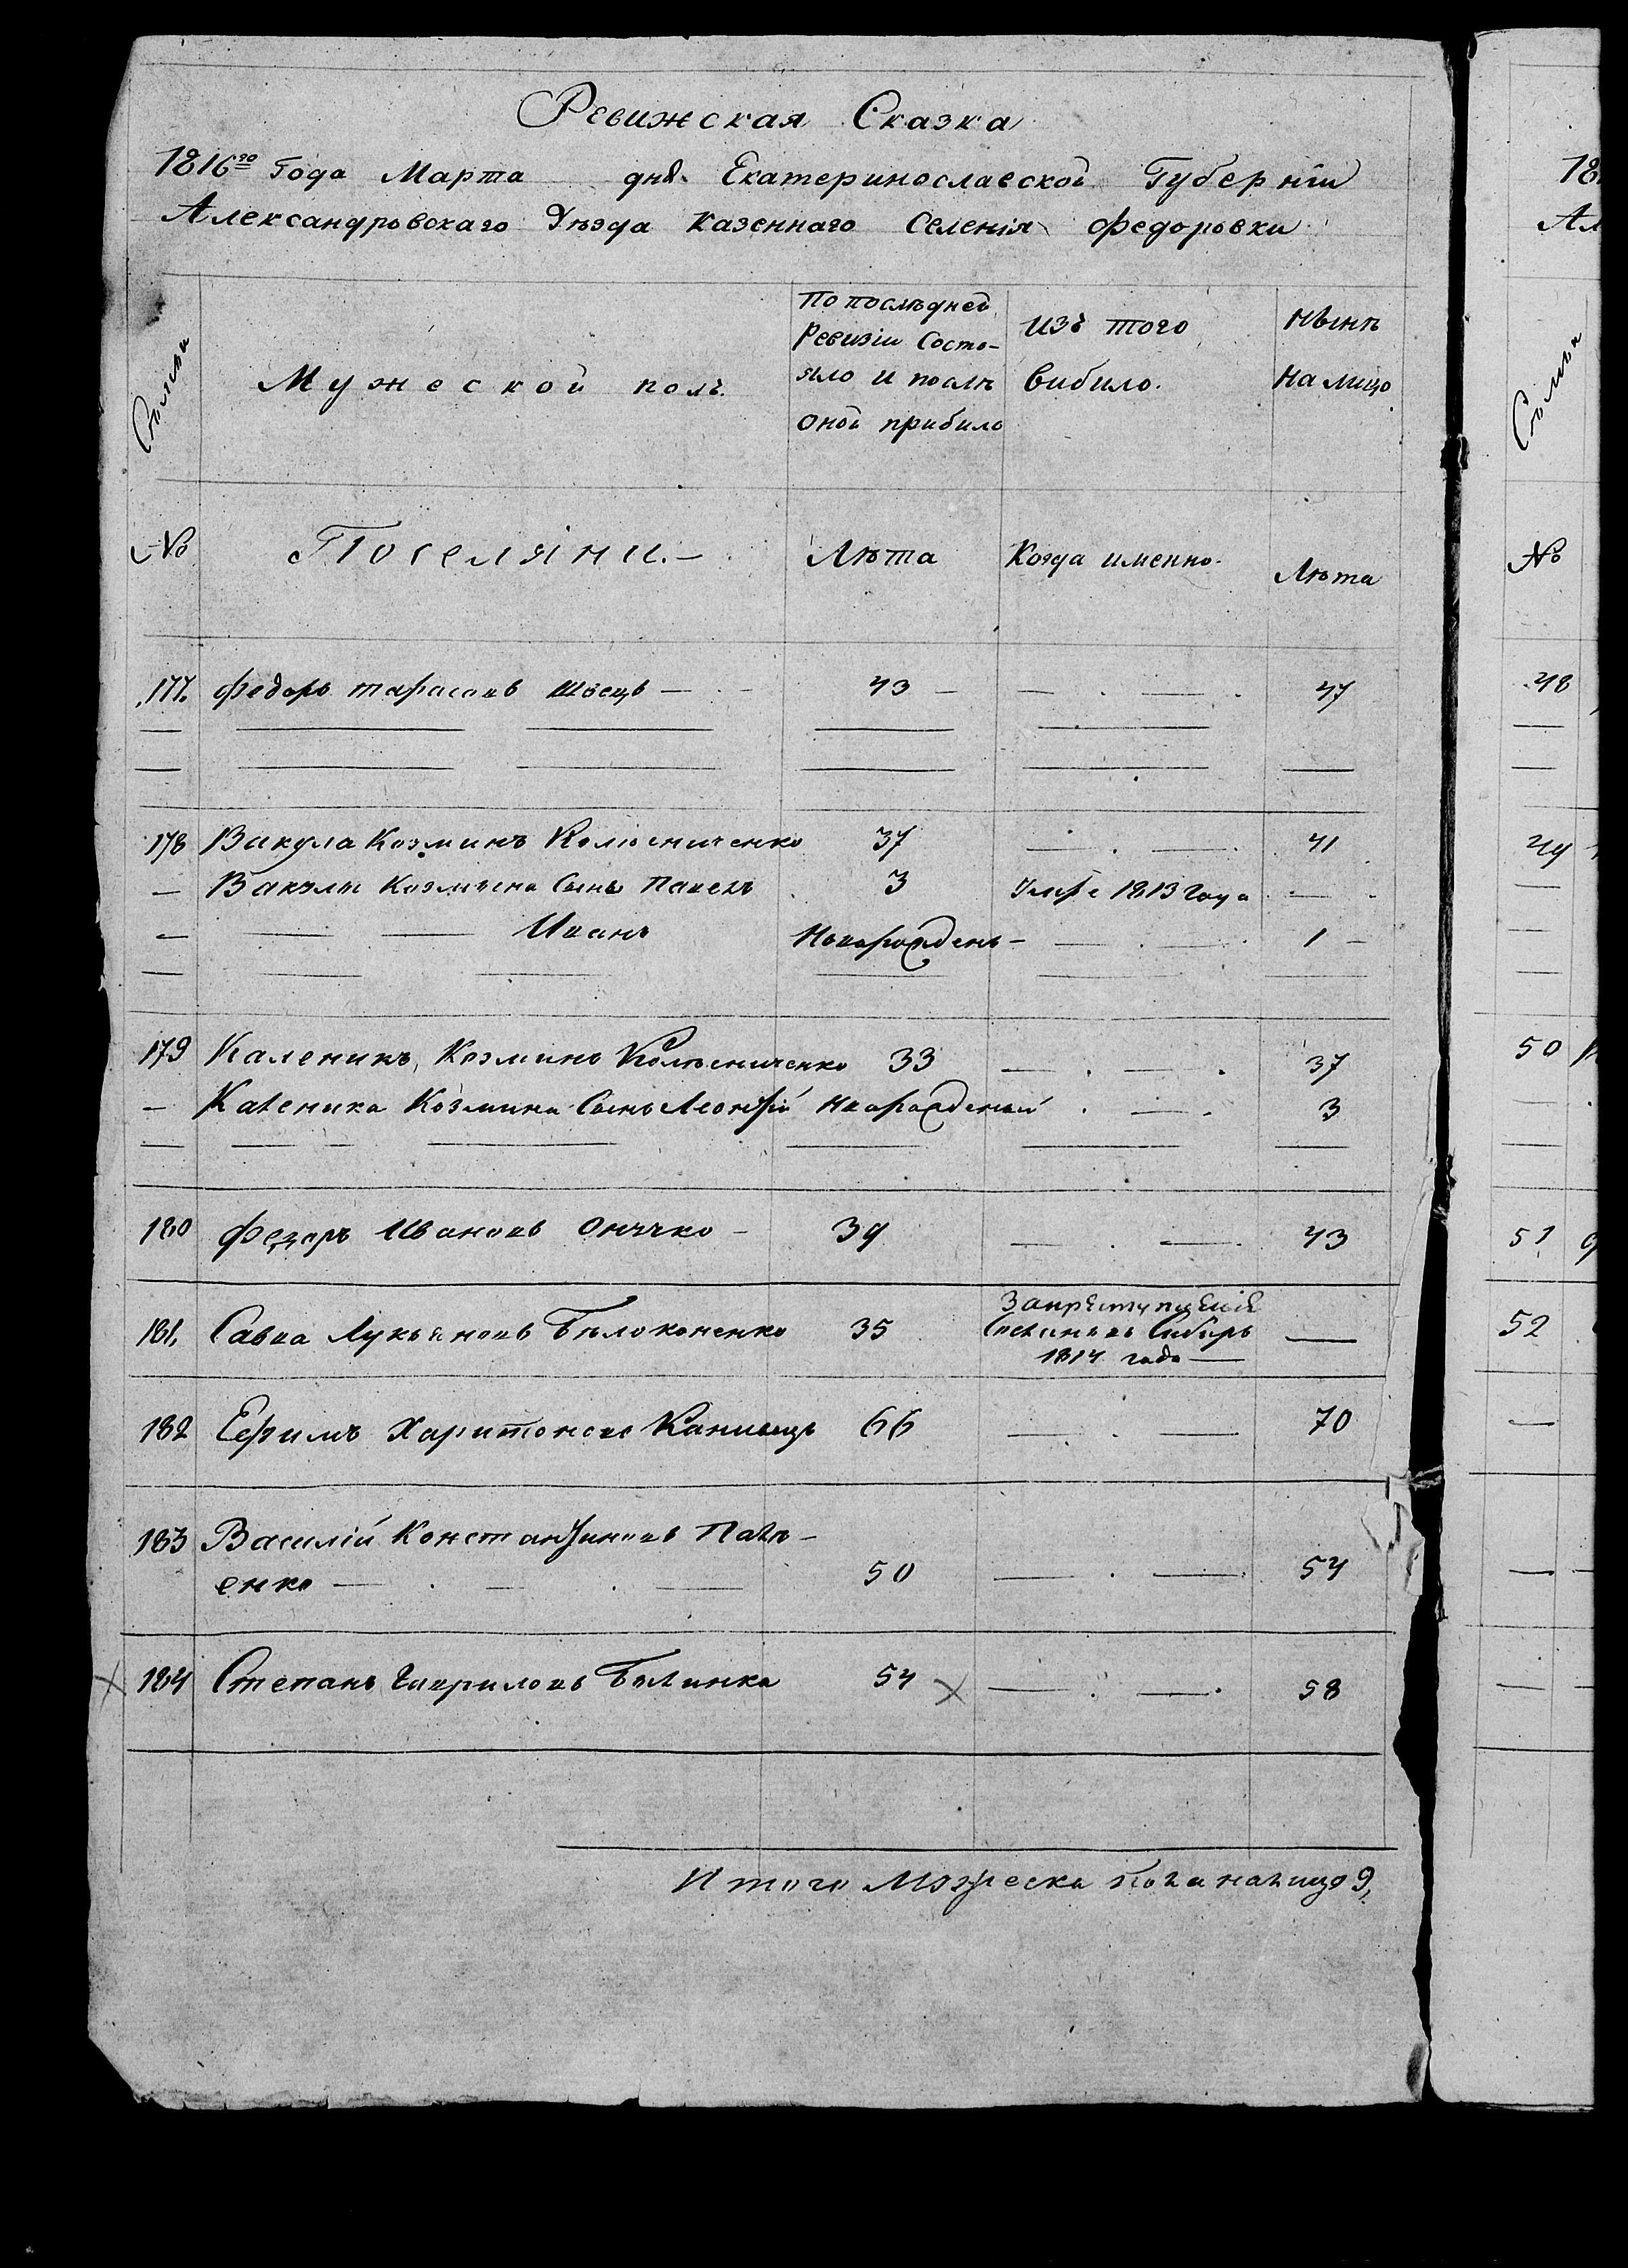 Ревижская Сказка
1816го Года Марта дня Екатеринославской Губернїи
Александровскаго Уѣзда казеннаго Селенія Федоровки
Мужеской полъ.
По послѣдней
Ревизіи Состо-
яло и послѣ
оной прибило
изъ того
вибило.
нынѣ
на лицо
№ Поселяни.— Лѣта Когда именно. Лѣта
177. Федоръ тарасовъ швецъ — 43 — 47
178 Вакула Козминъ Колѣсниченко 37 41
— Вакулы Козмина Сынъ Павелъ 3 Умре 1813 Года
— Иванъ Новорожденъ — 1 —
179 Каленикъ Козминъ Колѣсниченко 33 37
— Каленика Козмина Сынъ Новорожденый 3
180 Федоръ Ивановъ 39 43
181, Савва Лукьяновъ Бѣлоконенко 35
За преступленіе
Сосланъ въ Сибирь
1814 года —
182 Ефимъ Харитоновъ Канивецъ 66 70
183 Василій Константиновъ Павл-
енко — 50 54
184 Степанъ Гавриловъ 54 58
Итого Мужеска пола налицо 9,
18
Ал
№
48
49
50
51
52